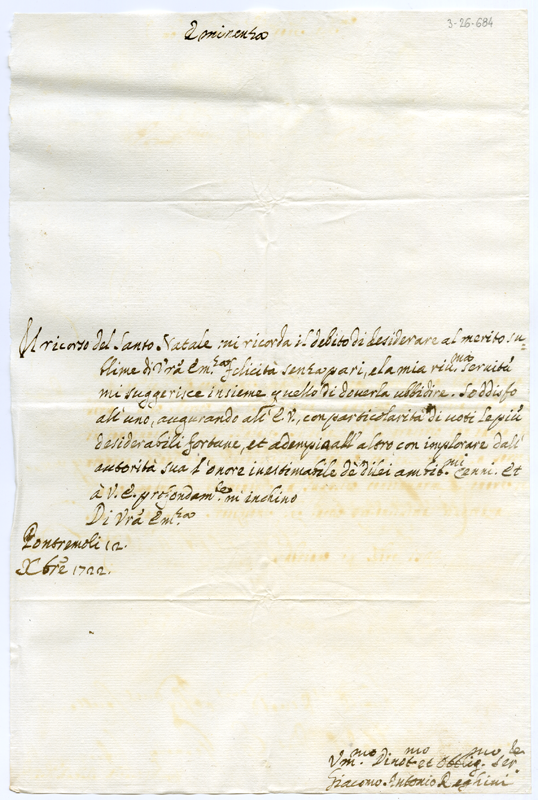 3-26-684
Eminenza
Il ricorso del Santo Natale mi ricorda il debito di desiderare al merito su=
blime di Vrã Em.za felicità senza pari, e la mia riv.ma servitù
mi suggerisce insieme quello di doverla ubbidire. Soddisfo
all'uno, augurando all'E.V., con particolarità di voti le più
desiderabili fortune, et adempio all'altro con implorare dall'
autorità sua l'onore inestimabile de' di lei ambit.mi cenni. Et
à V.E. profondam.te m'inchino
Di Vrã Em.za
Pontremoli 12.
Xbre 1722.
Vm.mo Divot.mo et Obblig.mo Ser.le
Giacomo Antonio Reghini